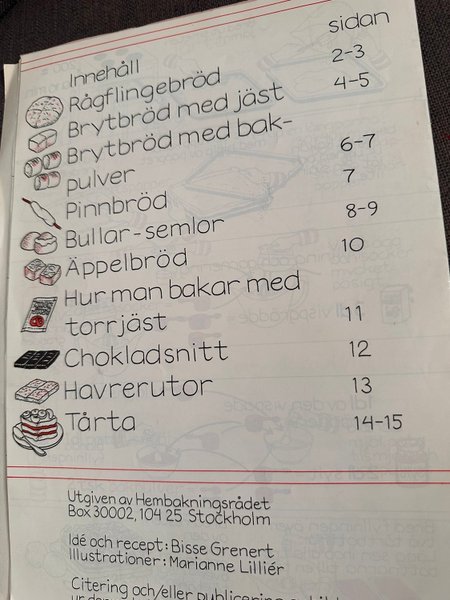 sidan
Innehåll
Rågflingebröd 2-3
Brytbröd med jäst 4-5
Brytbröd med bak-
pulver 6-7
Pinnbröd 7
Bullar-semlor 8-9
Äppelbröd 10
Hur man bakar med
torrjäst 11
Chokladsnitt 12
Havrerutor 13
Tårta 14-15
Utgiven av Hembakningsrådet
Box 30002, 104 25 Stockholm
Idé och recept: Bisse Grenert
Illustrationer: Marianne Lilliér
Citering och/eller publicering av